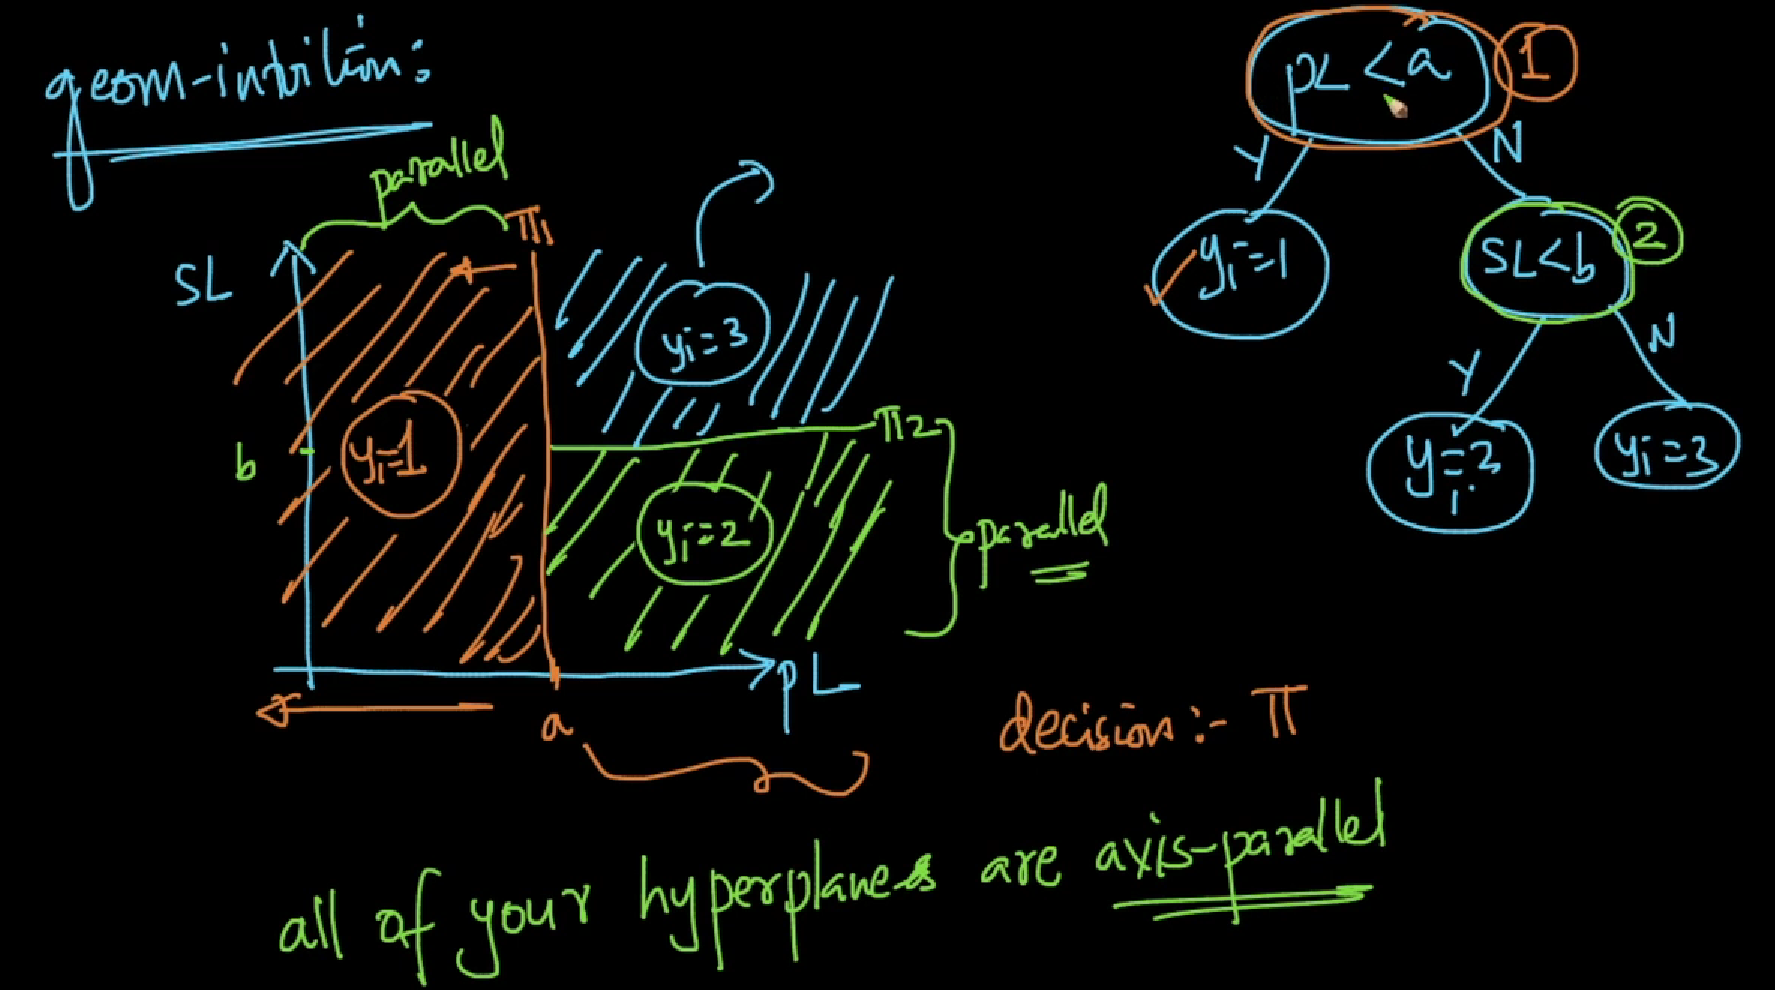 geom-intuition:
parallel
π1
SL
b
yi=1
yi=3
π2
yi=2
parallel
pL
a
pL<a
1
Y
N
yi=1
SL<b
2
Y
N
yi=2
yi=3
decision:- π
all of your hyperplanes are axis-parallel